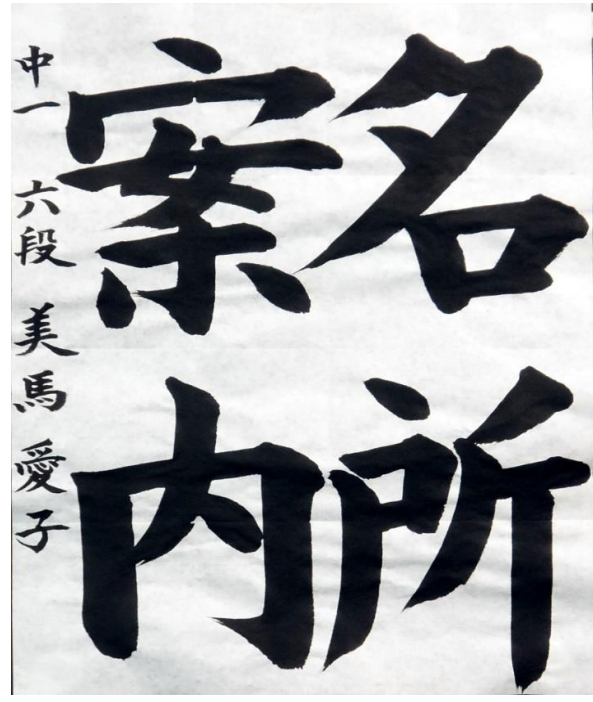 名所
案内
中一 六段 美馬愛子